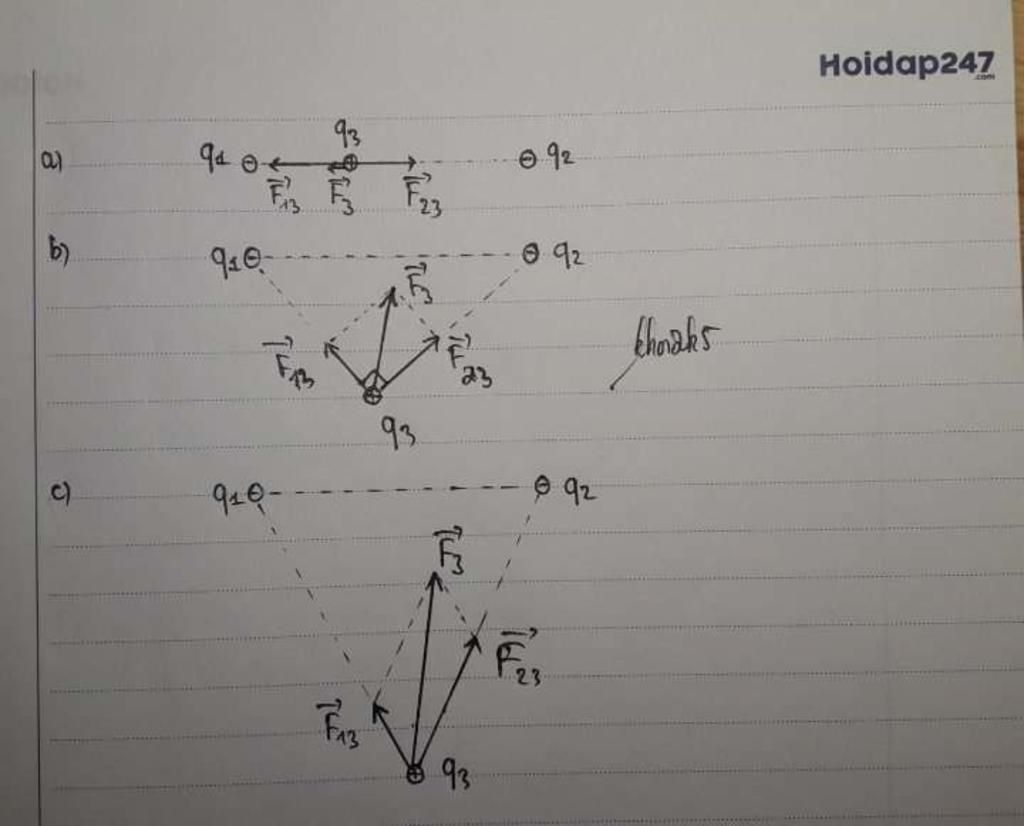 Hoidap247
.com
q3
a) q1 ⊖ ⊕ ⊖ q2
F⃗13 F⃗3 F⃗23
b) q1 ⊖ ⊖ q2
F⃗3
F⃗13 F⃗23
⊕
q3
khoahs
c) q1 ⊖ ⊖ q2
F⃗3
F⃗23
F⃗13
⊕ q3